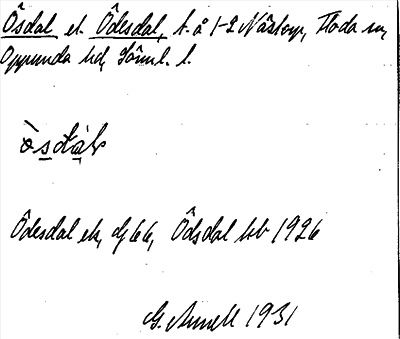 Ôsdal el. Ôdesdal, t. å 1-2 Nästorp, Floda sn,
Oppunda hd, Söml. l.
òsdàl
Ôdesdal ek, dj 66, Ôdsdal 1926
G. Annell 1931